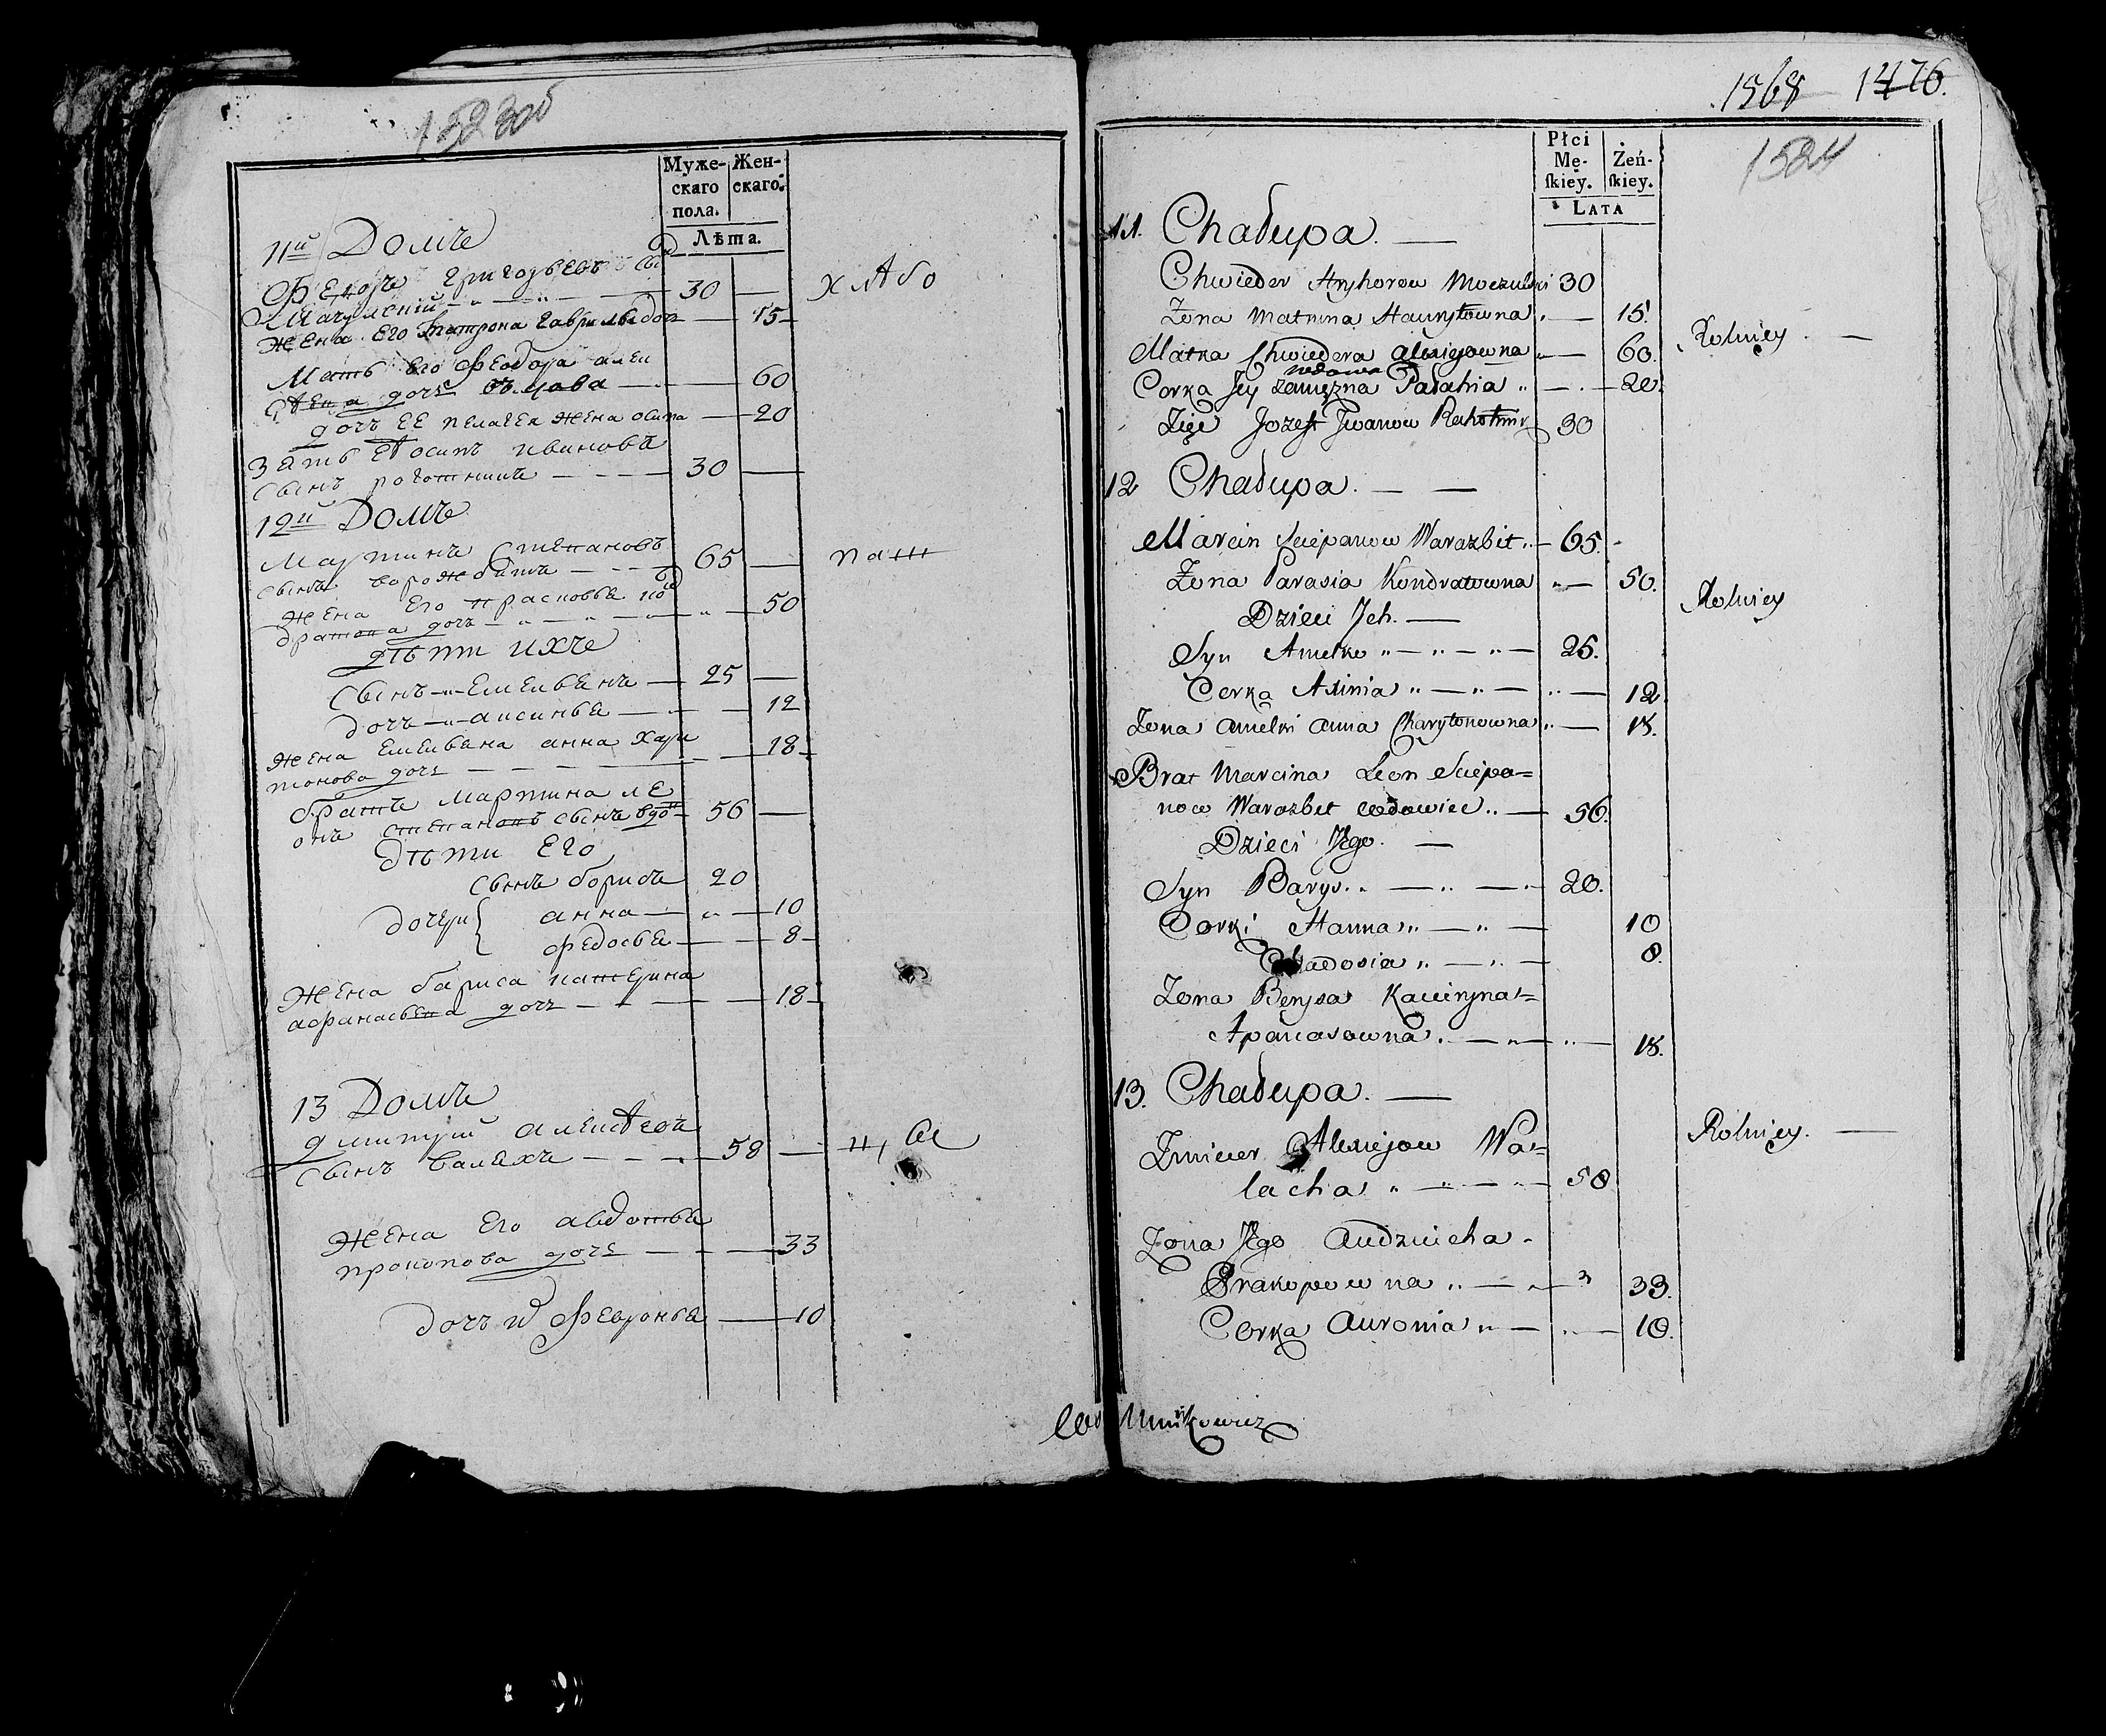 1523об
Муже-
скаго
пола.
Жен-
скаго.
Лѣта.
11й Домъ
Федоръ Григорьевъ сынъ
Мачульскій 30
жена его Матрона Гаврилова дочь 15
Мать его Феодора Алек
сѣева дочь вдова 60
дочь ее Пелагея жена осипа 20
Зять Іосипъ Ивановъ
сынъ роготникъ 30
хлѣбо
12й Домъ
Мартинъ Степановъ
сынъ ворожбитъ 65
жена его Прасковья Ко
дратова дочь 50
дѣти ихъ
сынъ Емельянъ 25
дочь аксинья 12
жена Емельяна анна Хари
тонова дочь 18
братъ Мартина Ле
онъ степановъ сынъ вдо 56
дѣти Его
сынъ борисъ 20
дочери анна 10
федосья 8
жена бариса катерина
афанасьева дочь 18
паш
13 Домъ
дмитрий алексѣевъ
сынъ валахъ 58
жена Его авдотья
прокопова дочь 33
дочь Февронья 10
цы
1568 1476.
1524
Płci
Mę-
skiey.
Żeń-
skiey.
Lata
11. Chałupa.
Chwieder Hryhorow Moczulski 30
Zona Matruna Hawryłowna 15.
Matka Chwiedera Alexiejowna 60.
wdowa
Corka Jey zamęzna Pałahia 20.
Zięć Jozef Jwanow Rahotnik 30
Rolnicy.
12 Chałupa.
Marcin Sciepanow Warazbit 65.
Zona Parasia Kondratowna 50.
Dzieci Jch.
Syn Amelko 25.
Corka Axinia 12
Zona Amelki Anna Charytonowna 18.
Brat Marcina Leon Sciepa=
now Warazbit wdowiec 56.
Dzieci Jego.
Syn Barys 20.
Corki Hanna 10
Chadosia 8.
Zona Borysa Kacirynа=
Apanasowna 18.
Rolnicy
13. Chałupa.
Zmicier Alexiejow Wa=
łacha 58
Zona Jego Audziucha
Prakopowna 33.
Corka Auronia 10.
Rolnicy.